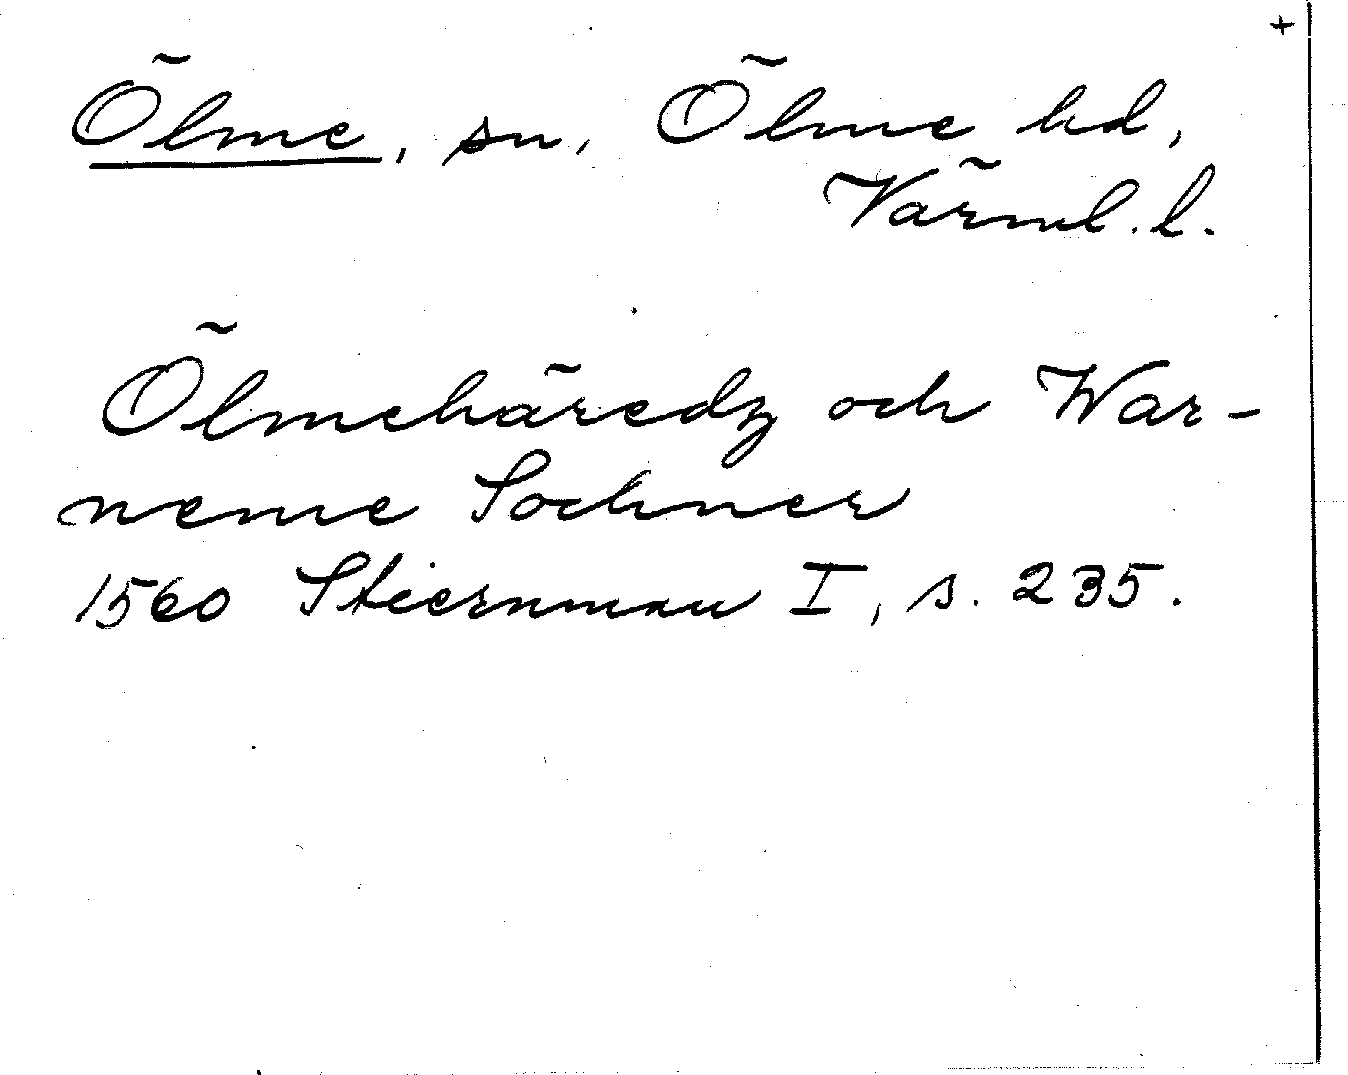 +
Ölme, sn, Ölme hd,
Värml. l.
Ölmehäredz och War-
neme Sochner
1560 Stiernman I, s. 235.